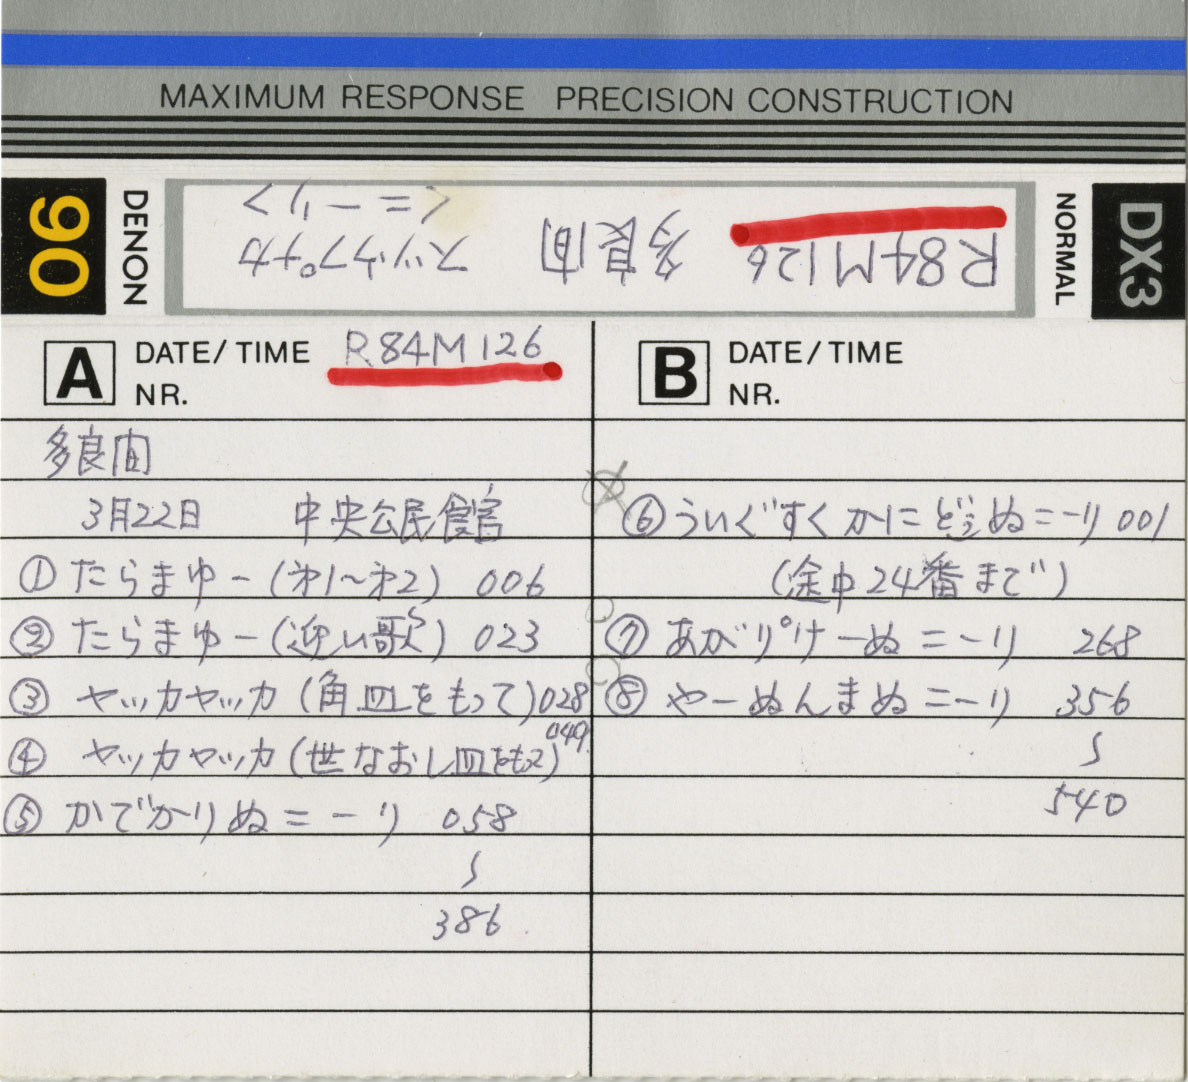 MAXIMUM RESPONSE PRECISION CONSTRUCTION
90
DENON
R84M126 多良間 スツウプナカ
<ニーリ>
NORMAL
DX3
A DATE/TIME R84M126
NR.
多良間
3月22日 中央公民館
① たらまゆー(才1~才2) 006
② たらまゆー(迎い歌) 023
③ ヤッカヤッカ(角皿をもって)028
④ ヤッカヤッカ(世なおし皿をもって)049
⑤ かでかりぬニーり 058
〜
386
B DATE/TIME
NR.
⑥ ういぐすくかにどぅぬニーり 001
(途中24番まで)
⑦ あがりﾟけーぬニーり 268
⑧ やーぬんまぬニーり 356
〜
540